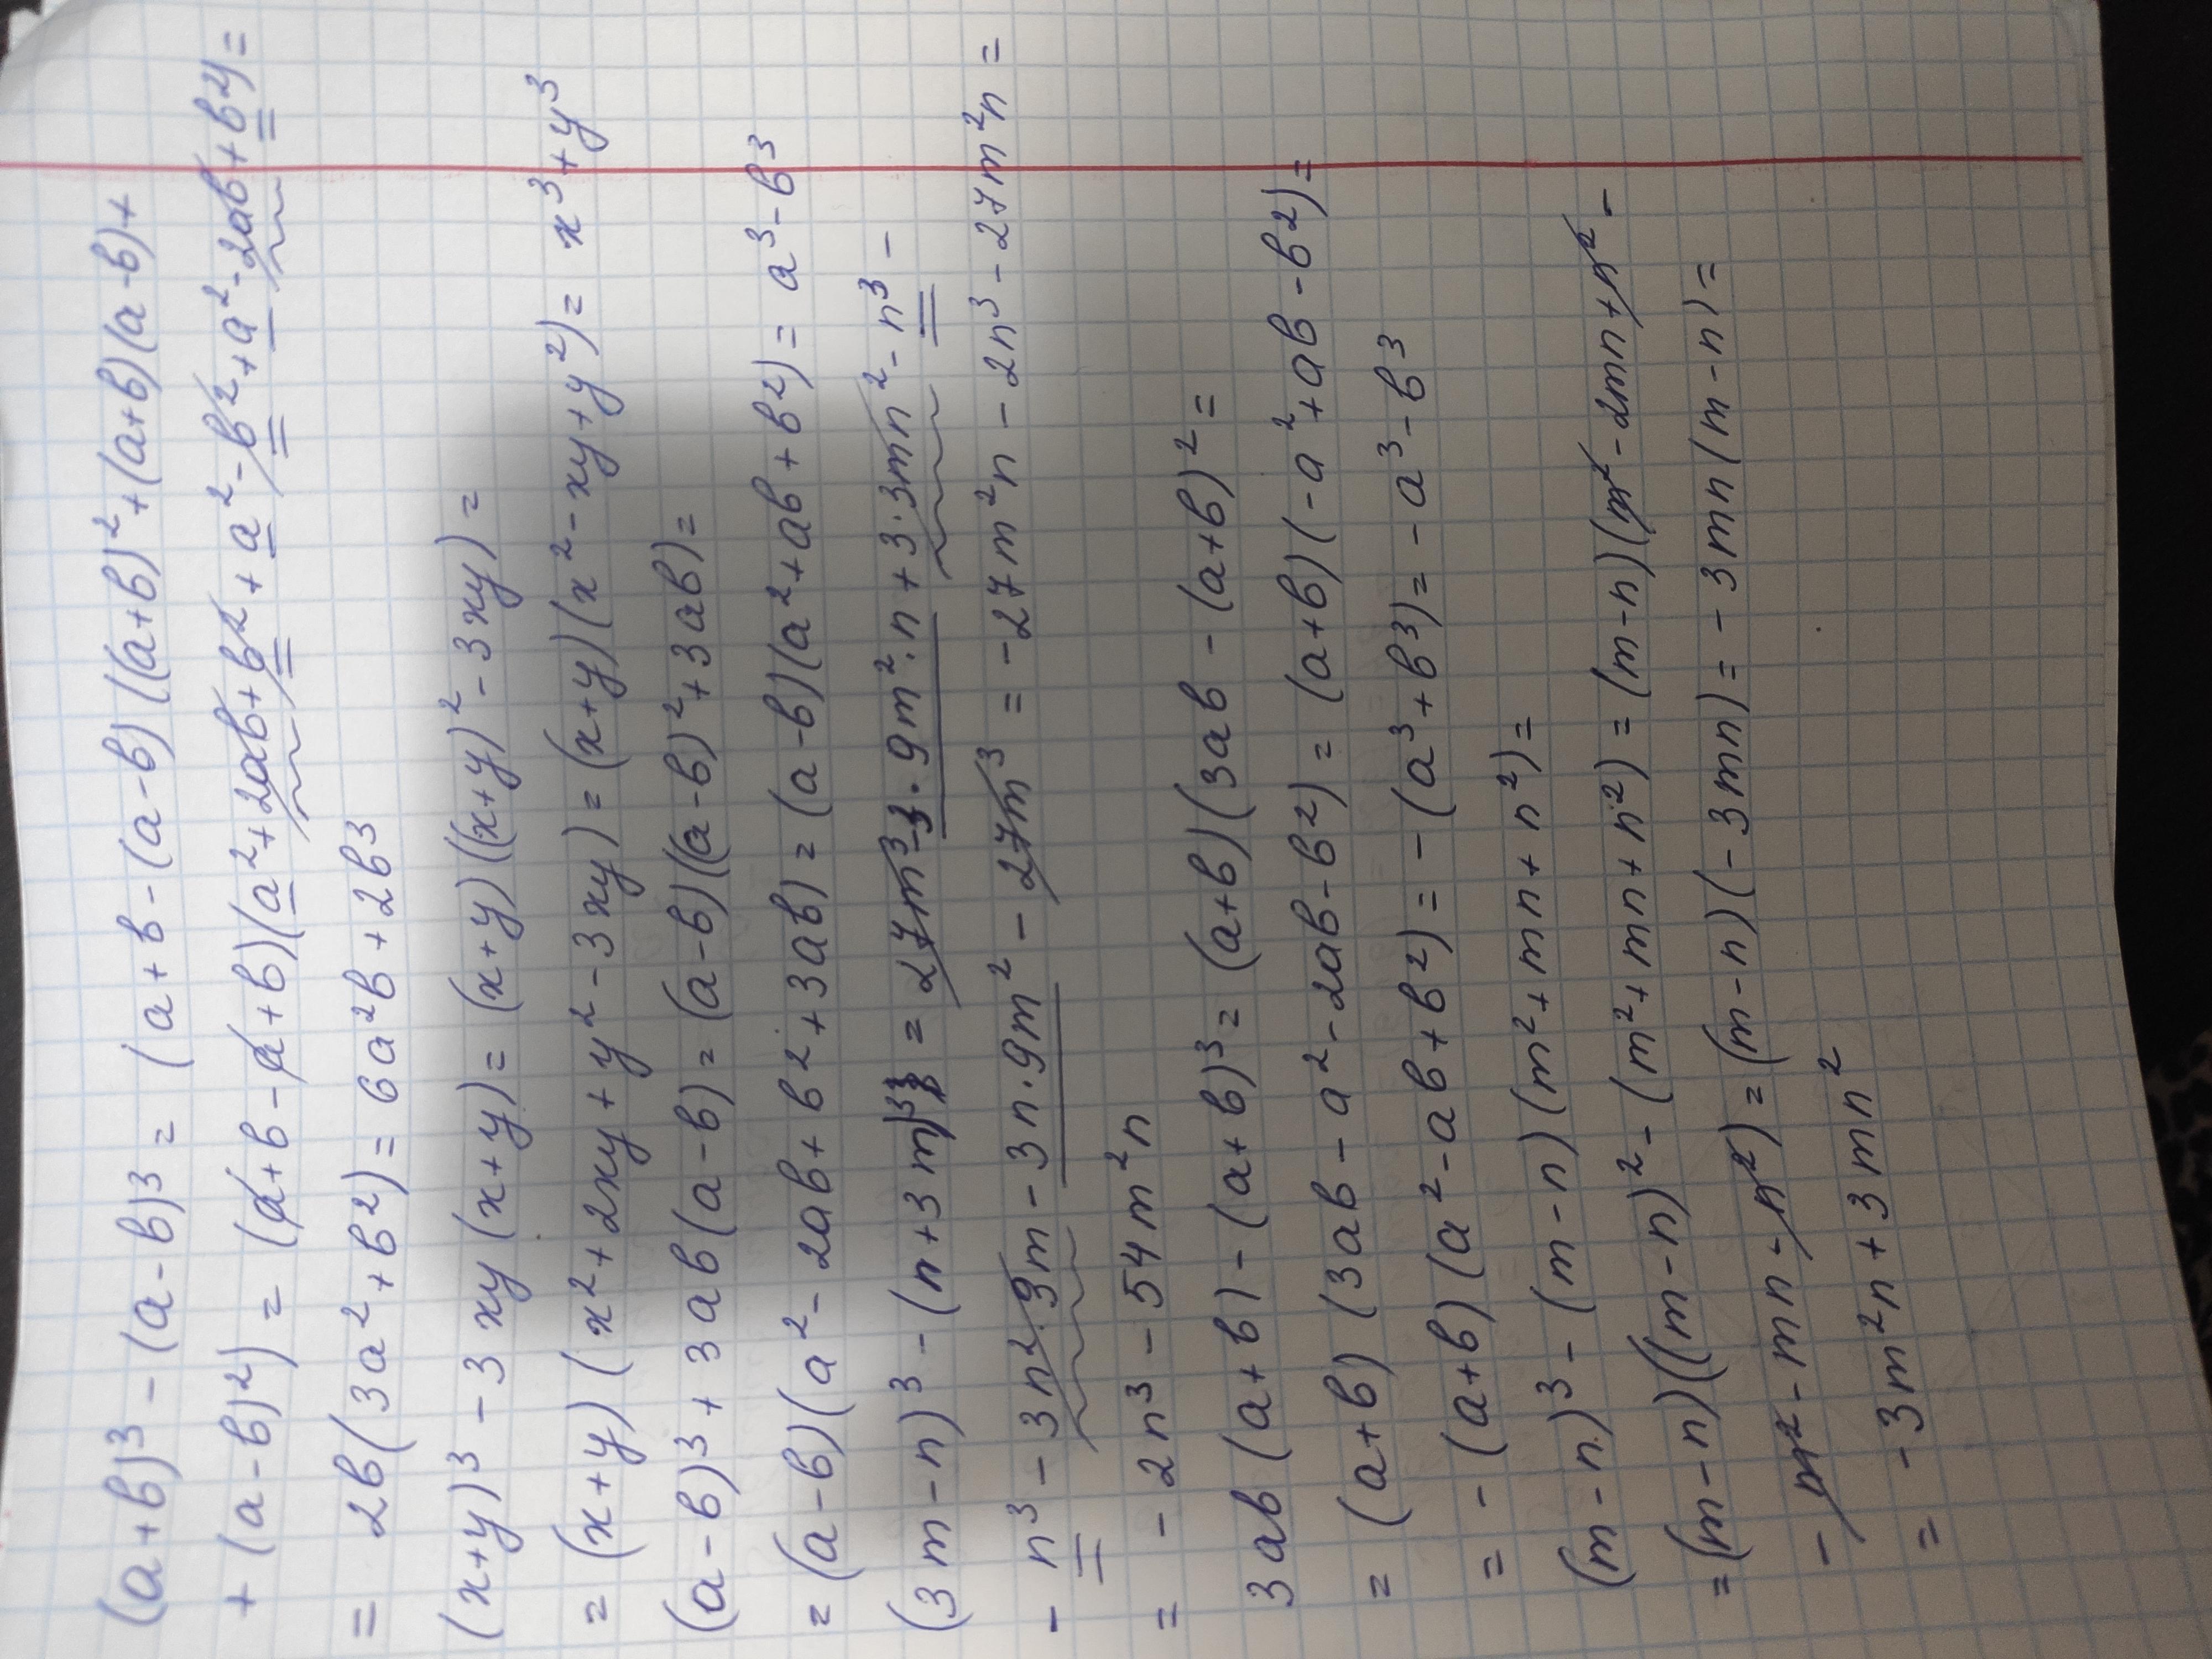 (a+b)³ - (a-b)³ = (a+b-(a-b)((a+b)²+(a+b)(a-b)+
+(a-b)²) = (a+b-a+b)(a²+2ab+b²+a²-b²+a²-2ab+b²)=
= 2b(3a²+b²) = 6a²b+2b³
(x+y)³ - 3xy(x+y) = (x+y)((x+y)²-3xy) =
= (x+y)(x²+2xy+y²-3xy) = (x+y)(x²-xy+y²) = x³+y³
(a-b)³+3ab(a-b) = (a-b)((a-b)²+3ab) =
= (a-b)(a²-2ab+b²+3ab) = (a-b)(a²+ab+b²) = a³-b³
(3m-n)³-(n+3m)³ = 27m³-3·9m²·n+3·3mn²-n³-
- n³-3n²·9m-3n·9m²-27m³ = -27m²n-2n³-27m²n =
= -2n³-54m²n
3ab(a+b)-(a+b)³ = (a+b)(3ab-(a+b)² =
= (a+b)(3ab-a²-2ab-b²) = (a+b)(-a²+ab-b²) =
= -(a+b)(a²-ab+b²) = -(a³+b³) = -a³-b³
(m-n)³-(m-n)(m²+mn+n²) =
= (m-n)((m-n)²-(m²+mn+n²) = (m-n)(m²-2mn+n²-
- m²-mn-n²) = (m-n)(-3mn) = -3mn(m-n) =
= -3m²n+3mn²